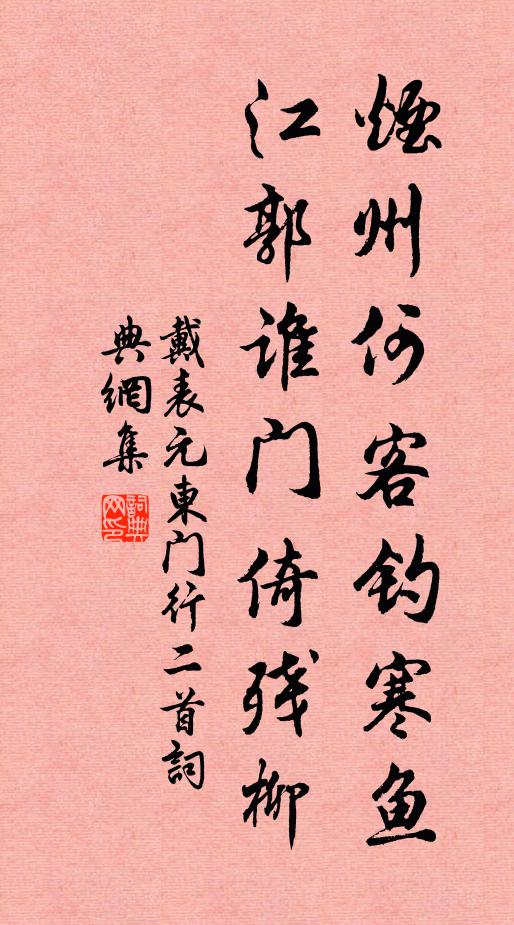 煙州何客钓寒鱼
江郭誰门倚残柳
戴表元東门行二首詞
典網集
詞典网印